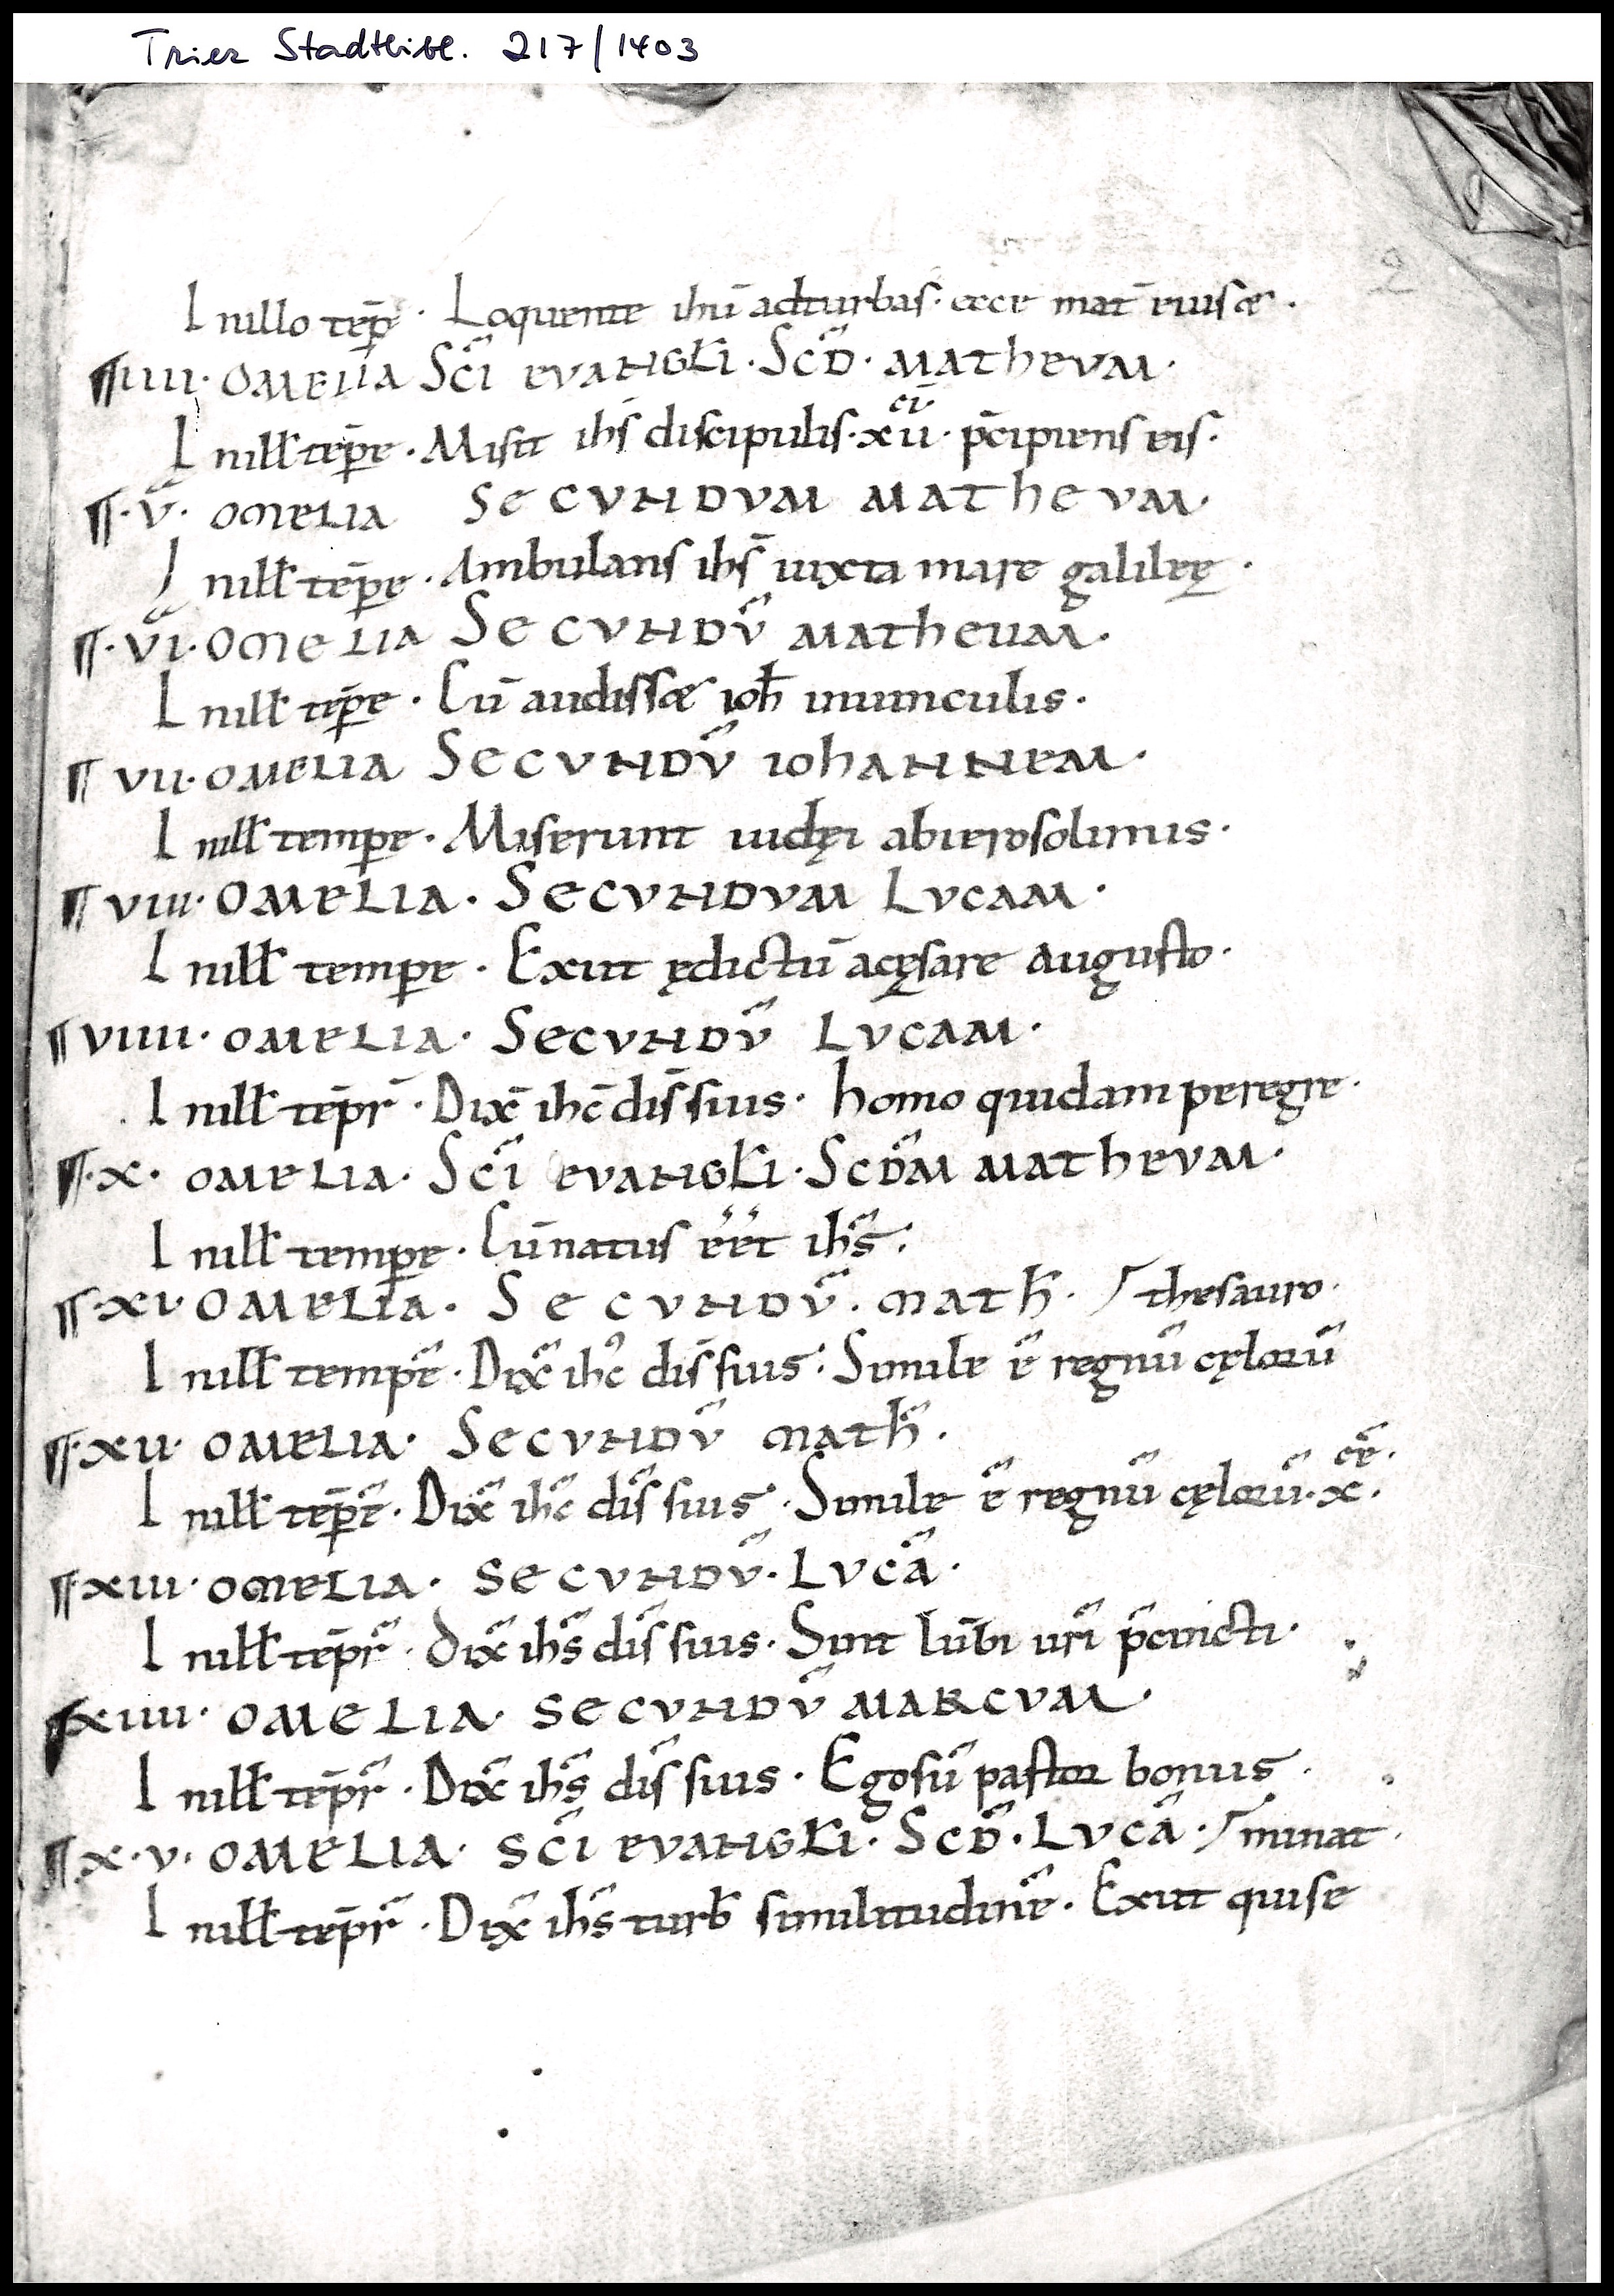 Trier Stadtbibl. 217/1403
2
Inillo tēp̄. Loquente ihū adturbas. ecce mat̄ eiusæ.
¶IIII. OMELIA SC̄I EVANGL̄I. SCD̄. MATHEVM.
Inill' tēp̄e. Misit ihs̄ discipulis. xūcī. p̄cipiens eis.
¶.V. OMELIA SECVNDVM MATHEVM.
Inill' tēp̄e. Ambulans ihs̄ iuxta mare galileę.
¶.VI. OMELIA SECVNDV̄ MATHEUM.
Inill' tēp̄e. Cū audissæ ioh̄ inuinculis.
¶ VII. OMELIA SECVNDV̄ IOHANNEM.
Inill' tempe. Miserunt iudęi abierosolimis.
¶ VIII. OMELIA. SECVNDVM LVCAM.
Inill' tempe. Exiit ędictū acęsare augusto.
¶ VIIII. OMELIA. SECVNDV̄ LVCAM.
Inill' tēpr̄. Dix̄ ihc̄ dis̄ suis. homo quidam peregre.
¶.X. OMELIA. SC̄I EVANGL̄I. SCD̄M MATHEVM.
Inill' tempe. Cūnatus eēt ihs̄.
¶.XI. OMELIA. SECVNDV̄. MATH̄. thesauro.
Inill' tempē. Dix̄ ihc̄ dis̄ suis. Simile ē regnū cęlorū
¶.XII. OMELIA. SECVNDV̄ MATH̄.
Inill' tēp̄ē. Dix̄ ihc̄ dis̄ suis. Simile ē regnū cęlorū. xcē.
¶.XIII. OMELIA. SECVNDV̄. LVCĀ.
Inill' tēpr̄. Dix̄ ihs̄ dis̄ suis. Sint lūbi ur̄i p̄cincti.
¶XIIII. OMELIA. SECVNDV̄ MARCVM.
Inill' tēpr̄. Dix̄ ihs̄ dis̄ suis. Egosū pastor bonus.
¶.X.V. OMELIA. SC̄I EVANGL̄I. SCD̄. LVCĀ. minat.
Inill' tēpr̄. Dix̄ ihs̄ turb̄ similitudinē. Exiit quise